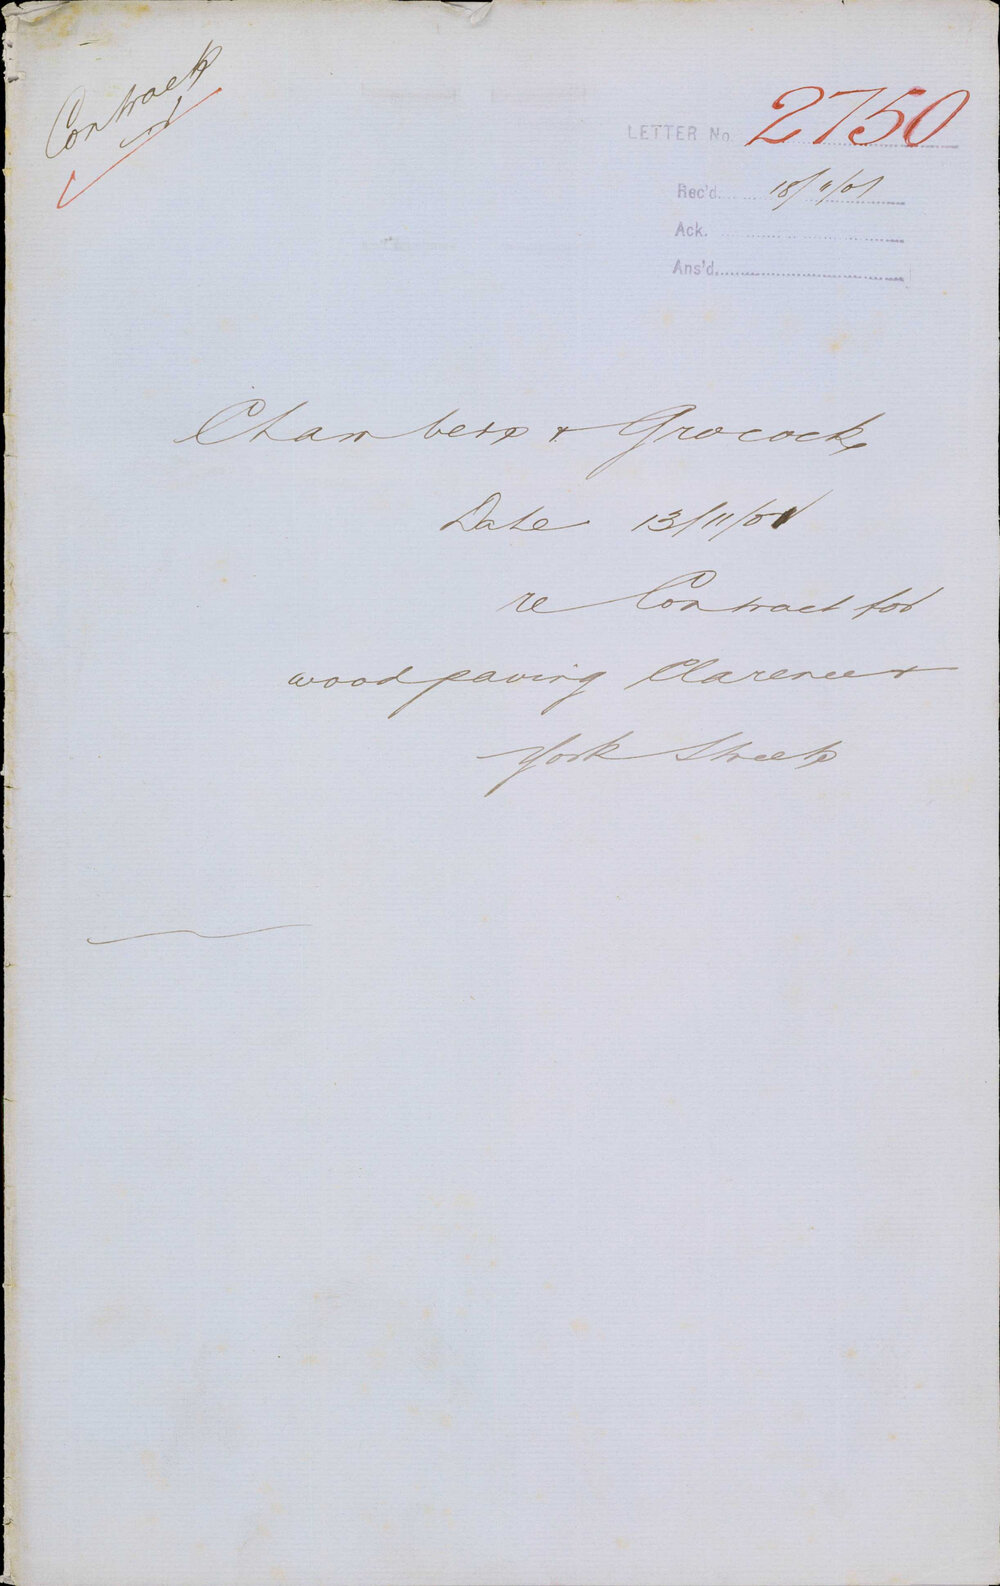 Contracts
LETTER No. 2750
Rec'd. 18/11/01
Ack.
Ans'd.
Chambers & Grocock
Date 13/11/01
re Contract for
wood paving Clarence &
York Streets